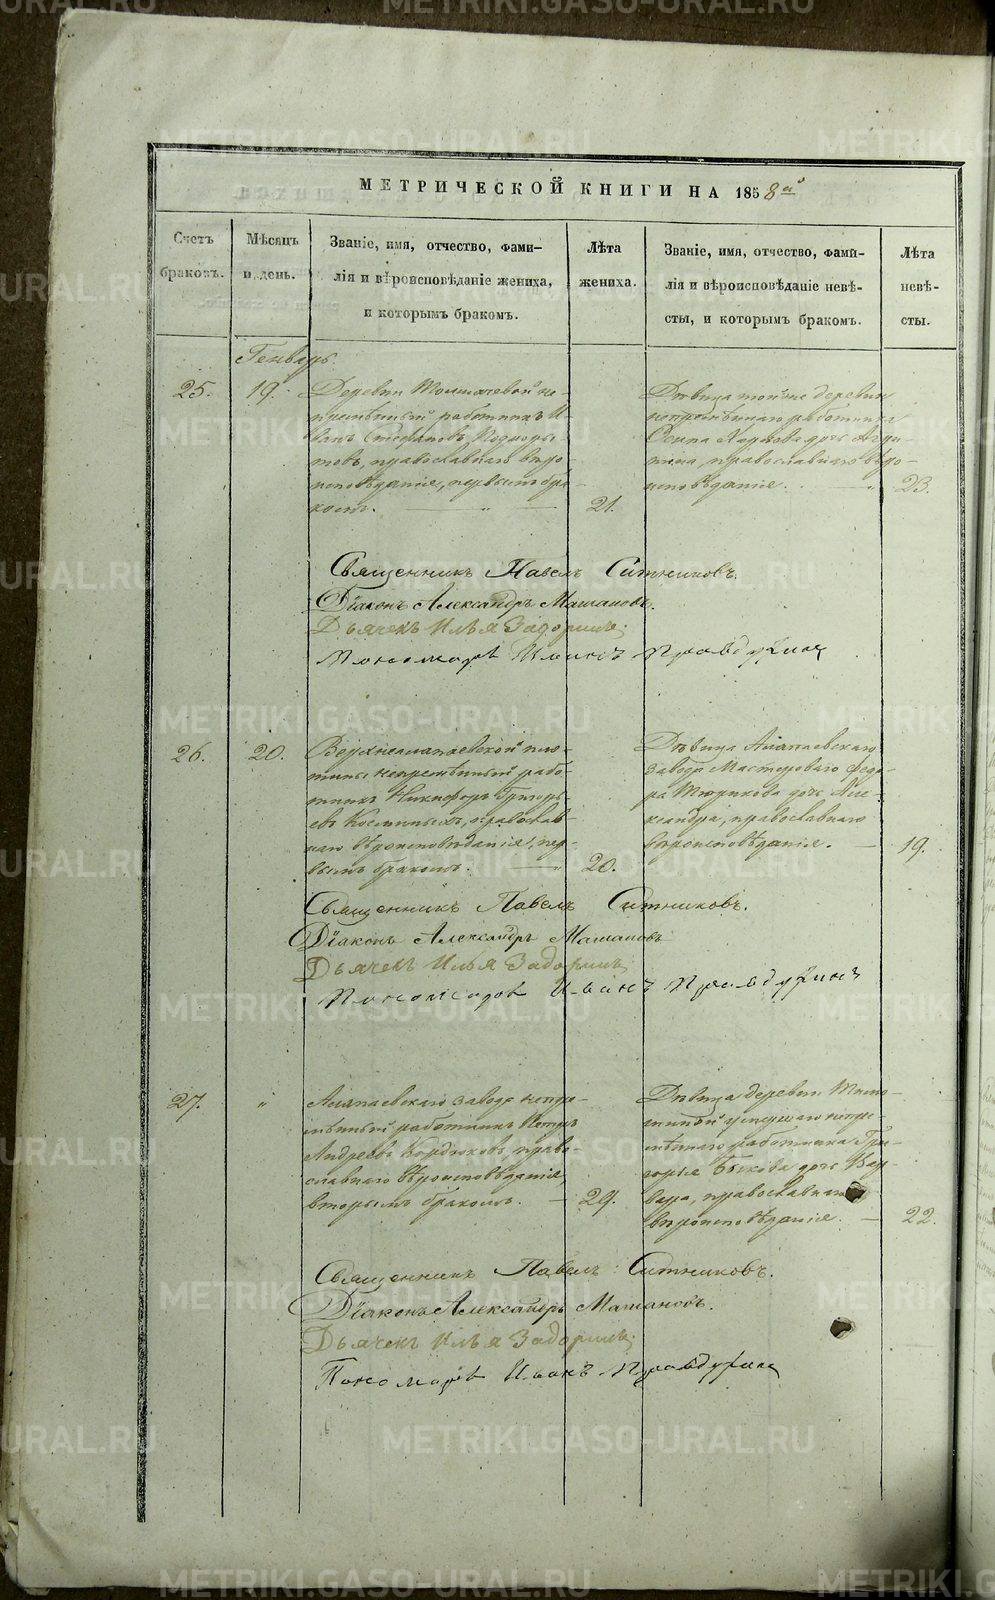 МЕТРИЧЕСКОЙ КНИГИ НА 1858й
Счетъ браковъ.
Мѣсяцъ и день.
Званіе, имя, отчество, фами-
лія и вѣроисповѣданіе жениха,
и которымъ бракомъ.
Лѣта жениха.
Званіе, имя, отчество, фами-
лія и вѣроисповѣданіе невѣ-
сты, и которымъ бракомъ.
Лѣта невѣ-
сты.
Генварь.
25.
19.
Деревни Толмачевой не-
премѣнный работникъ И
ванъ Стефановъ Подкоры-
товъ, православнаго вѣро-
исповѣданія, первымъ бра
комъ.
21.
Дѣвица той же деревни
непремѣннаго работника
Осипа дочь
православнаго вѣро-
исповѣданія.
23.
Священникъ Павелъ Ситниковъ.
Діаконъ Александръ Машановъ.
Дьячекъ Илья Задоринъ
Пономарь Иванъ Правдухинъ
26.
20.
Верхнеалапаевской пло-
тины непремѣнный рабо-
тникъ Никифоръ Григорь
евъ Косминыхъ, православ-
наго вѣроисповѣданія, пер-
вымъ бракомъ.
20.
Дѣвица Алапаевскаго
завода Мастероваго Федо-
ра Тюрикова дочь Але-
ксандра, православнаго
вѣроисповѣданія.
19.
Священникъ Павелъ Ситниковъ.
Діаконъ Александръ Машановъ
Дьячекъ Илья Задоринъ
Пономарь Иванъ Правдухинъ
27.
"
Алапаевскаго завода непре-
мѣнный работникъ Петръ
Андреевъ Кордюковъ, право-
славнаго вѣроисповѣданія,
вторымъ бракомъ.
29.
Дѣвица деревни
умершаго непре-
мѣннаго работника Гри-
горья Быкова дочь Вар-
вара, православнаго
вѣроисповѣданія.
22.
Священникъ Павелъ Ситниковъ.
Діаконъ Александръ Машановъ.
Дьячекъ Илья Задоринъ
Пономарь Иванъ Правдухинъ
METRIKI.GASO-URAL.RU